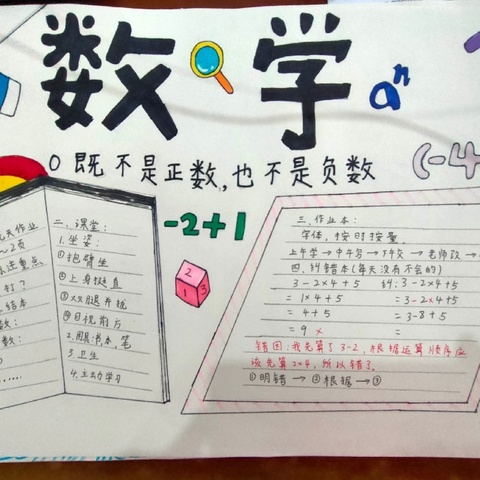 数学
aⁿ
0 既不是正数,也不是负数
(-4
-2+1
2
1 3
天作业
~2页
重点
打?
结本
数:
数:
......
二、课堂:
1.坐姿:
①抱臂坐
②上身挺直
③双腿并拢
④目视前方
2.用具:书本 笔
3.卫生
4.主动学习
三、作业本:
字体,按时按量.
上午学→中午写→下午交→老师改→
四、纠错本(每天没有不会的)
3-2×4+5 纠:3-2×4+5
=1×4+5 =3-2×4+5
=4+5 =3-8+5
=9 × =
错因:我先算了3-2,根据运算顺序应
该先算2×4,所以错了。
①明错→②根据→③